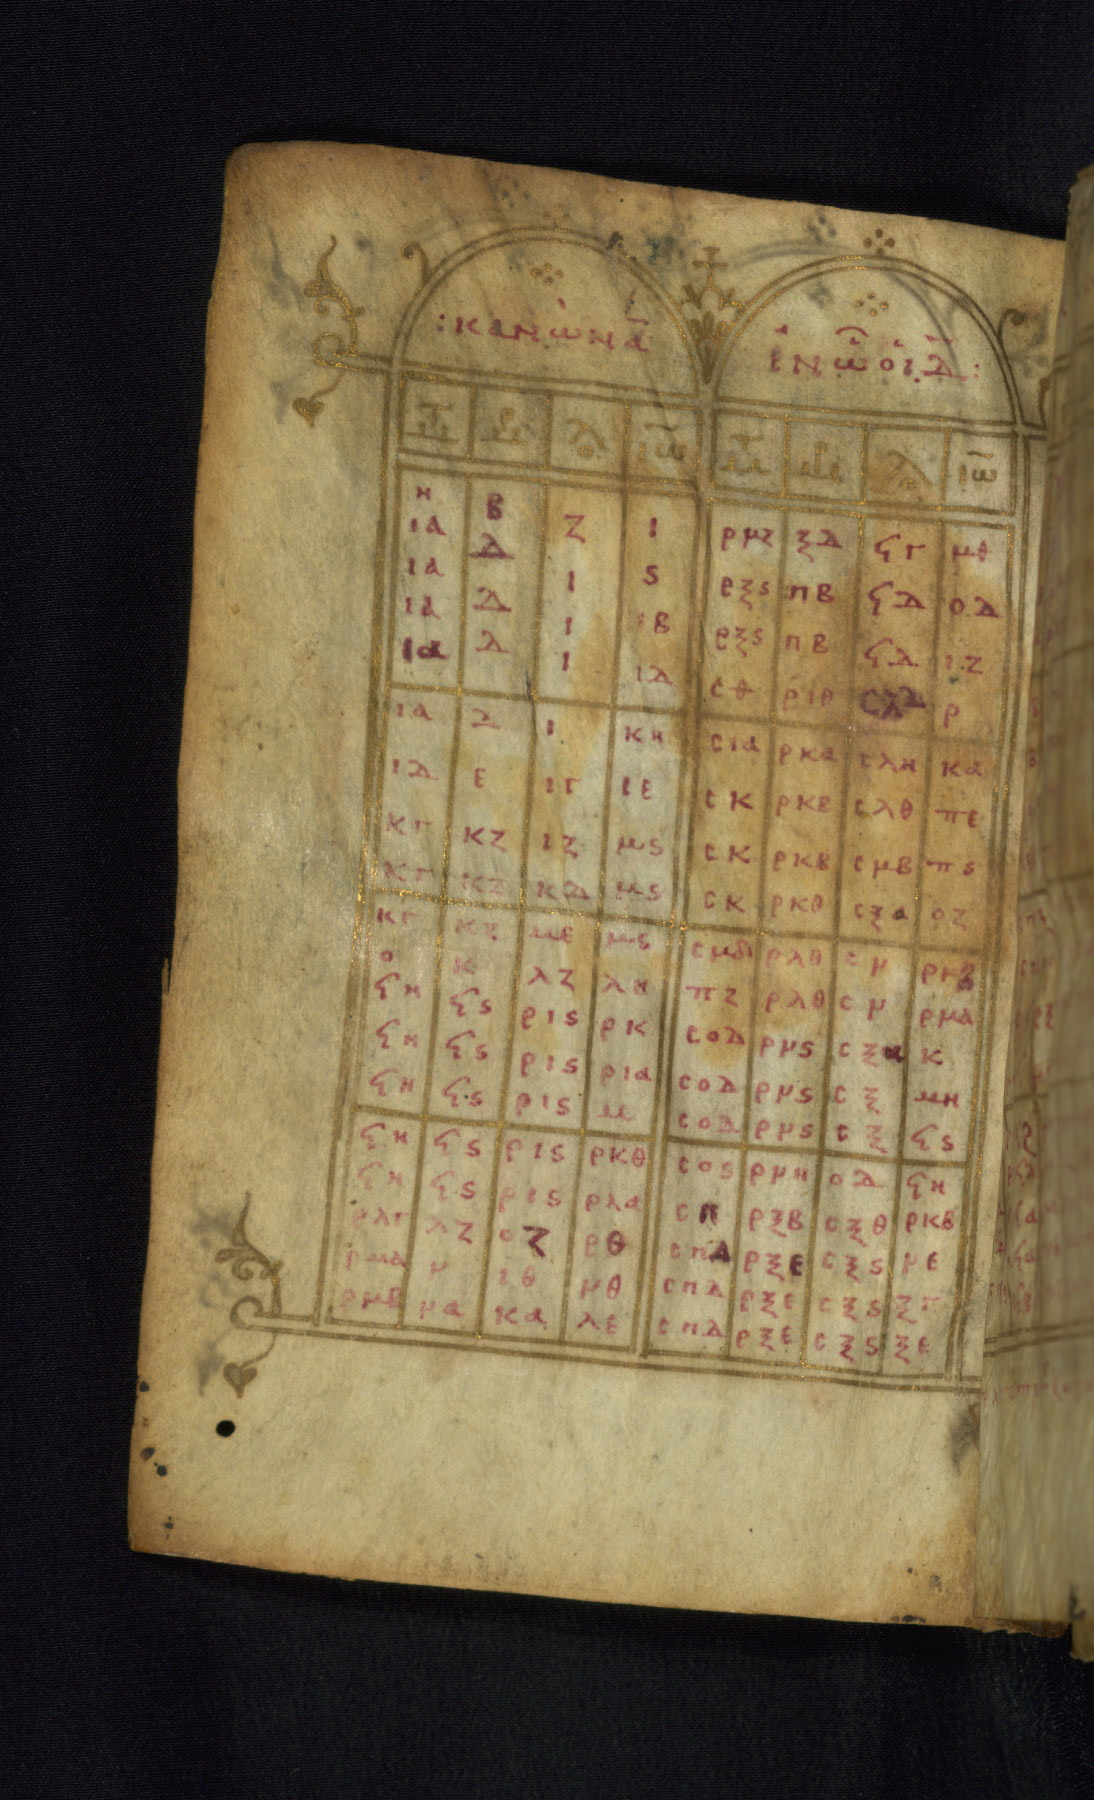 :κανὼν ᾱ ἐν ὧ οἱ δ̄:
ΜΤ ΜΡ ΛΟ ΙΩ ΜΤ ΜΡ ΛΟ ΙΩ
η β ζ ι ρμζ ξδ ϟγ μθ
ια δ ι ϛ ρξϛ πβ ϟδ οδ
ια δ ι ιβ ρξϛ πβ ϟδ ιζ
ια δ ι ιδ σθ ριθ σλδ ρ
ια δ ι κη σια ρκα σλη κα
ιδ ε ιγ ιε σκ ρκβ σλθ πε
κγ κζ ιζ μϛ σκ ρκβ σμβ πϛ
κγ κζ κδ μϛ σκ ρκθ σξα οζ
κγ κζ με μϛ σμδ ρλθ σμ
ο κ λζ λη πζ ρλθ σμ ρμα
ϟη ϟϛ ριϛ ρκ σοδ ρμϛ σξα κ
ϟη ϟϛ ριϛ ρια σοδ ρμϛ σξ μη
ϟη ϟϛ ριϛ μ σοδ ρμϛ σξ ϟϛ
ϟη ϟϛ ριϛ ρκθ σοϛ ρμη οδ ϟη
ϟη ϟϛ ριϛ ρλα σπ ρξβ σξθ ρκβ
ρλγ λζ οζ ρθ σπδ ρξε σξϛ με
ρμα μ ιθ μθ σπδ ρξε σξϛ ξγ
ρμβ μα κα λε σπδ ρξε σξϛ ξε